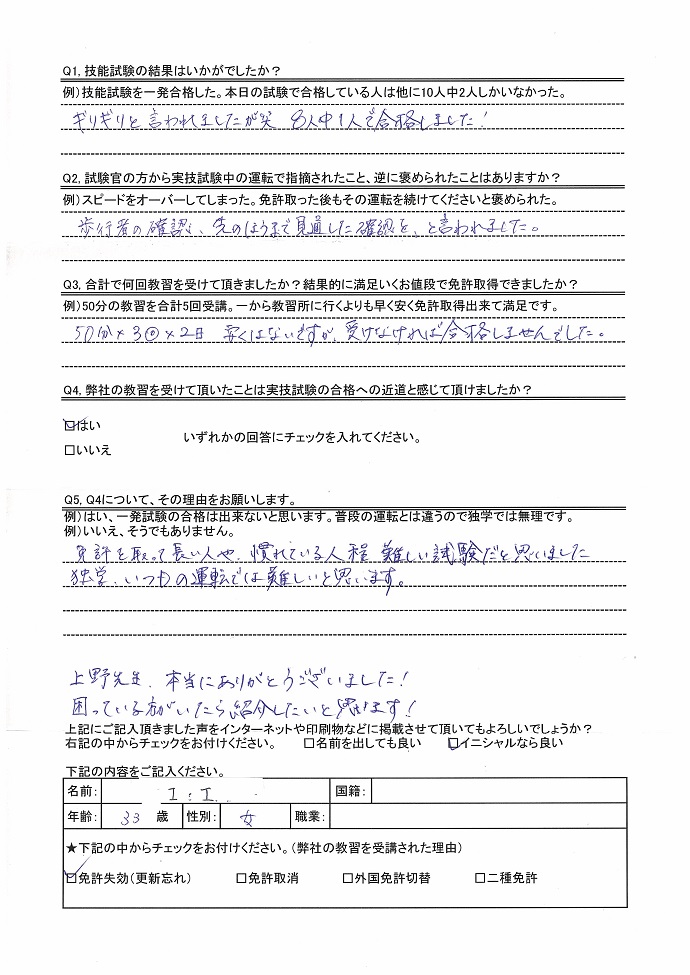 Q1, 技能試験の結果はいかがでしたか？
例）技能試験を一発合格した。本日の試験で合格している人は他に10人中2人しかいなかった。
ギリギリと言われましたが 8人中1人で合格しました！
Q2, 試験官の方から実技試験中の運転で指摘されたこと、逆に褒められたことはありますか？
例）スピードをオーバーしてしまった。免許取った後もその運転を続けてくださいと褒められた。
歩行者の確認、先のほうまで見通した確認を、と言われました。
Q3, 合計で何回教習を受けて頂きましたか？結果的に満足いくお値段で免許取得できましたか？
例）50分の教習を合計5回受講。一から教習所に行くよりも早く安く免許取得出来て満足です。
50分×3回×2日 安くはないですが、受けなければ合格しませんでした。
Q4, 弊社の教習を受けて頂いたことは実技試験の合格への近道と感じて頂けましたか？
☑はい
いずれかの回答にチェックを入れてください。
□いいえ
Q5, Q4について、その理由をお願いします。
例）はい、一発試験の合格は出来ないと思います。普段の運転とは違うので独学では無理です。
例）いいえ、そうでもありません。
免許を取って長い人や、慣れている人程 難しい試験だと思いました
独学、いつもの運転では難しいと思います。
上野先生、本当にありがとうございました！
困っている方がいたら紹介したいと思います！
上記にご記入頂きました声をインターネットや印刷物などに掲載させて頂いてもよろしいでしょうか？
右記の中からチェックをお付けください。 □名前を出しても良い ☑イニシャルなら良い
下記の内容をご記入ください。
名前： I.I. 国籍：
年齢： 33 歳 性別： 女 職業：
★下記の中からチェックをお付けください。（弊社の教習を受講された理由）
☑免許失効（更新忘れ） □免許取消 □外国免許切替 □二種免許